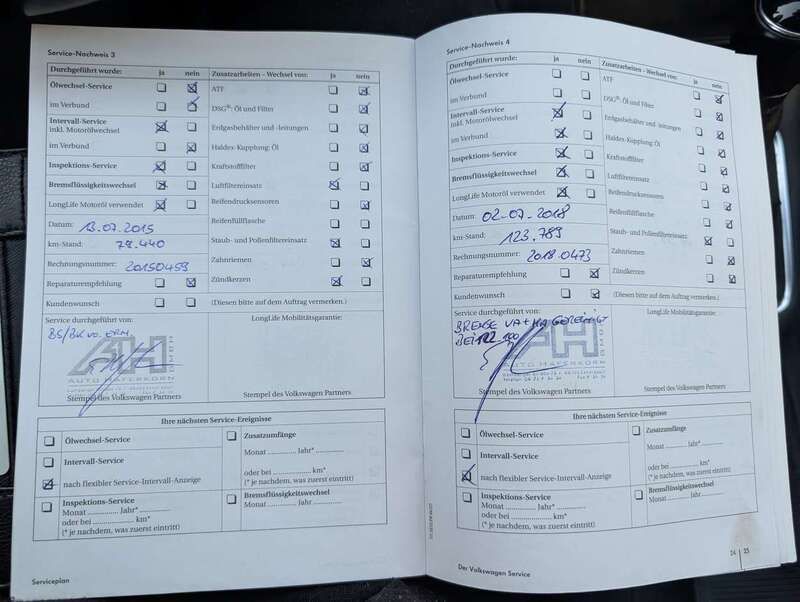 Service-Nachweis 3
Durchgeführt wurde: ja nein
Zusatzarbeiten – Wechsel von: ja nein
Ölwechsel-Service
ATF
im Verbund
DSG®: Öl und Filter
Intervall-Service
inkl. Motorölwechsel
Erdgasbehälter und -leitungen
im Verbund
Haldex-Kupplung: Öl
Inspektions-Service
Kraftstofffilter
Bremsflüssigkeitswechsel
Luftfiltereinsatz
LongLife Motoröl verwendet
Reifendrucksensoren
Datum: 13.07.2015
Reifenfüllflasche
km-Stand: 79.440
Staub- und Pollenfiltereinsatz
Rechnungsnummer: 20150459
Zahnriemen
Reparaturempfehlung
Zündkerzen
Kundenwunsch
(Diesen bitte auf dem Auftrag vermerken.)
Service durchgeführt von:
LongLife Mobilitätsgarantie:
AH
GMBH
AUTO HAFERKORN
Stempel des Volkswagen Partners
Stempel des Volkswagen Partners
Ihre nächsten Service-Ereignisse
Ölwechsel-Service
Zusatzumfänge
Intervall-Service
Monat .............. Jahr*..............
nach flexibler Service-Intervall-Anzeige
oder bei .................. km*
(* je nachdem, was zuerst eintritt)
Inspektions-Service
Monat .............. Jahr*..............
oder bei .................. km*
(* je nachdem, was zuerst eintritt)
Bremsflüssigkeitswechsel
Monat .............. Jahr ..............
Serviceplan
Service-Nachweis 4
Durchgeführt wurde: ja nein
Zusatzarbeiten – Wechsel von: ja nein
Ölwechsel-Service
ATF
im Verbund
DSG®: Öl und Filter
Intervall-Service
inkl. Motorölwechsel
Erdgasbehälter und -leitungen
im Verbund
Haldex-Kupplung: Öl
Inspektions-Service
Kraftstofffilter
Bremsflüssigkeitswechsel
Luftfiltereinsatz
LongLife Motoröl verwendet
Reifendrucksensoren
Datum: 02.07.2018
Reifenfüllflasche
km-Stand: 123.789
Staub- und Pollenfiltereinsatz
Rechnungsnummer: 2018.0473
Zahnriemen
Reparaturempfehlung
Zündkerzen
Kundenwunsch
(Diesen bitte auf dem Auftrag vermerken.)
Service durchgeführt von:
LongLife Mobilitätsgarantie:
BREMSE VA + HA GEREINIGT
BEI
AH
GMBH
AUTO HAFERKORN
Stempel des Volkswagen Partners
Stempel des Volkswagen Partners
Ihre nächsten Service-Ereignisse
Ölwechsel-Service
Zusatzumfänge
Intervall-Service
Monat .............. Jahr*..............
nach flexibler Service-Intervall-Anzeige
oder bei .................. km*
(* je nachdem, was zuerst eintritt)
Inspektions-Service
Monat .............. Jahr*..............
oder bei .................. km*
(* je nachdem, was zuerst eintritt)
Bremsflüssigkeitswechsel
Monat .............. Jahr ..............
24 25
Der Volkswagen Service